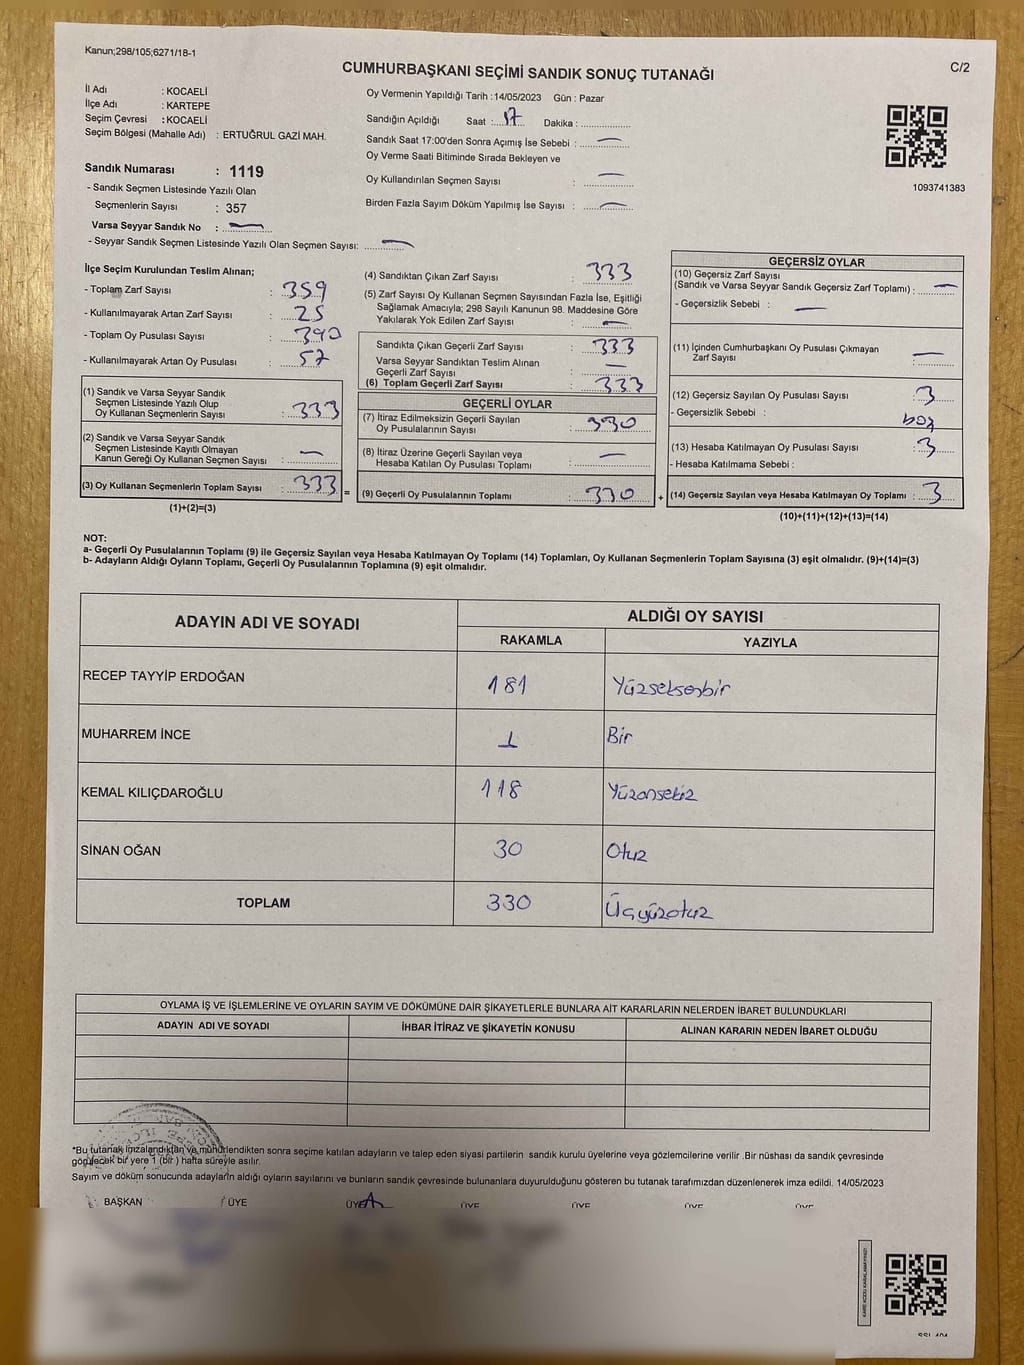 Kanun;298/105;6271/18-1
C/2
CUMHURBAŞKANI SEÇİMİ SANDIK SONUÇ TUTANAĞI
İl Adı : KOCAELİ
İlçe Adı : KARTEPE
Seçim Çevresi : KOCAELİ
Seçim Bölgesi (Mahalle Adı) : ERTUĞRUL GAZİ MAH.
Sandık Numarası : 1119
- Sandık Seçmen Listesinde Yazılı Olan
Seçmenlerin Sayısı : 357
Varsa Seyyar Sandık No : —
- Seyyar Sandık Seçmen Listesinde Yazılı Olan Seçmen Sayısı: —
Oy Vermenin Yapıldığı Tarih :14/05/2023 Gün : Pazar
Sandığın Açıldığı Saat : 17 Dakika :
Sandık Saat 17:00'den Sonra Açımış İse Sebebi : —
Oy Verme Saati Bitiminde Sırada Bekleyen ve
Oy Kullandırılan Seçmen Sayısı : —
Birden Fazla Sayım Döküm Yapılmış İse Sayısı : —
1093741383
İlçe Seçim Kurulundan Teslim Alınan;
- Toplam Zarf Sayısı : 359
- Kullanılmayarak Artan Zarf Sayısı : 25
- Toplam Oy Pusulası Sayısı : 390
- Kullanılmayarak Artan Oy Pusulası : 57
(1) Sandık ve Varsa Seyyar Sandık
Seçmen Listesinde Yazılı Olup
Oy Kullanan Seçmenlerin Sayısı : 333
(2) Sandık ve Varsa Seyyar Sandık
Seçmen Listesinde Kayıtlı Olmayan
Kanun Gereği Oy Kullanan Seçmen Sayısı : —
(3) Oy Kullanan Seçmenlerin Toplam Sayısı : 333
(1)+(2)=(3)
(4) Sandıktan Çıkan Zarf Sayısı : 333
(5) Zarf Sayısı Oy Kullanan Seçmen Sayısından Fazla İse, Eşitliği
Sağlamak Amacıyla; 298 Sayılı Kanunun 98. Maddesine Göre
Yakılarak Yok Edilen Zarf Sayısı : —
Sandıkta Çıkan Geçerli Zarf Sayısı : 333
Varsa Seyyar Sandıktan Teslim Alınan
Geçerli Zarf Sayısı : —
(6) Toplam Geçerli Zarf Sayısı : 333
GEÇERLİ OYLAR
(7) İtiraz Edilmeksizin Geçerli Sayılan
Oy Pusulalarının Sayısı : 330
(8) İtiraz Üzerine Geçerli Sayılan veya
Hesaba Katılan Oy Pusulası Toplamı : —
= (9) Geçerli Oy Pusulalarının Toplamı : 330
GEÇERSİZ OYLAR
(10) Geçersiz Zarf Sayısı
(Sandık ve Varsa Seyyar Sandık Geçersiz Zarf Toplamı) : —
- Geçersizlik Sebebi : —
(11) İçinden Cumhurbaşkanı Oy Pusulası Çıkmayan
Zarf Sayısı : —
(12) Geçersiz Sayılan Oy Pusulası Sayısı : 3
- Geçersizlik Sebebi :
(13) Hesaba Katılmayan Oy Pusulası Sayısı : 3
- Hesaba Katılmama Sebebi :
+ (14) Geçersiz Sayılan veya Hesaba Katılmayan Oy Toplamı : 3
(10)+(11)+(12)+(13)=(14)
NOT:
a- Geçerli Oy Pusulalarının Toplamı (9) ile Geçersiz Sayılan veya Hesaba Katılmayan Oy Toplamı (14) Toplamları, Oy Kullanan Seçmenlerin Toplam Sayısına (3) eşit olmalıdır. (9)+(14)=(3)
b- Adayların Aldığı Oyların Toplamı, Geçerli Oy Pusulalarının Toplamına (9) eşit olmalıdır.
ADAYIN ADI VE SOYADI
ALDIĞI OY SAYISI
RAKAMLA YAZIYLA
RECEP TAYYİP ERDOĞAN 181 Yüzseksenbir
MUHARREM İNCE 1 Bir
KEMAL KILIÇDAROĞLU 118 Yüzonsekiz
SİNAN OĞAN 30 Otuz
TOPLAM 330 Üçyüzotuz
OYLAMA İŞ VE İŞLEMLERİNE VE OYLARIN SAYIM VE DÖKÜMÜNE DAİR ŞİKAYETLERLE BUNLARA AİT KARARLARIN NELERDEN İBARET BULUNDUKLARI
ADAYIN ADI VE SOYADI İHBAR İTİRAZ VE ŞİKAYETİN KONUSU ALINAN KARARIN NEDEN İBARET OLDUĞU
*Bu tutanak imzalandıktan ve mühürlendikten sonra seçime katılan adayların ve talep eden siyasi partilerin sandık kurulu üyelerine veya gözlemcilerine verilir .Bir nüshası da sandık çevresinde
görülecek bir yere 1 (bir ) hafta süreyle asılır.
Sayım ve döküm sonucunda adayların aldığı oyların sayılarını ve bunların sandık çevresinde bulunanlara duyurulduğunu gösteren bu tutanak tarafımızdan düzenlenerek imza edildi. 14/05/2023
BAŞKAN ÜYE ÜYE ÜYE ÜYE ÜYE ÜYE